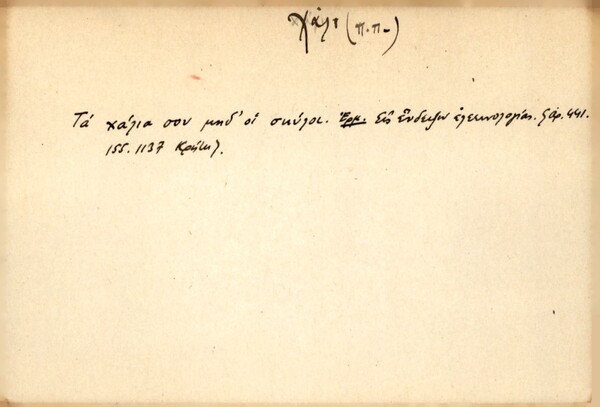 χάλι (π.π.)
Τά χάλια σου μηδ' οἱ σκύλοι. Ἑρμ. Εἰς ἔνδειξιν ἐλεεινολογίας. 441.
155. 1137 Κρήτη).